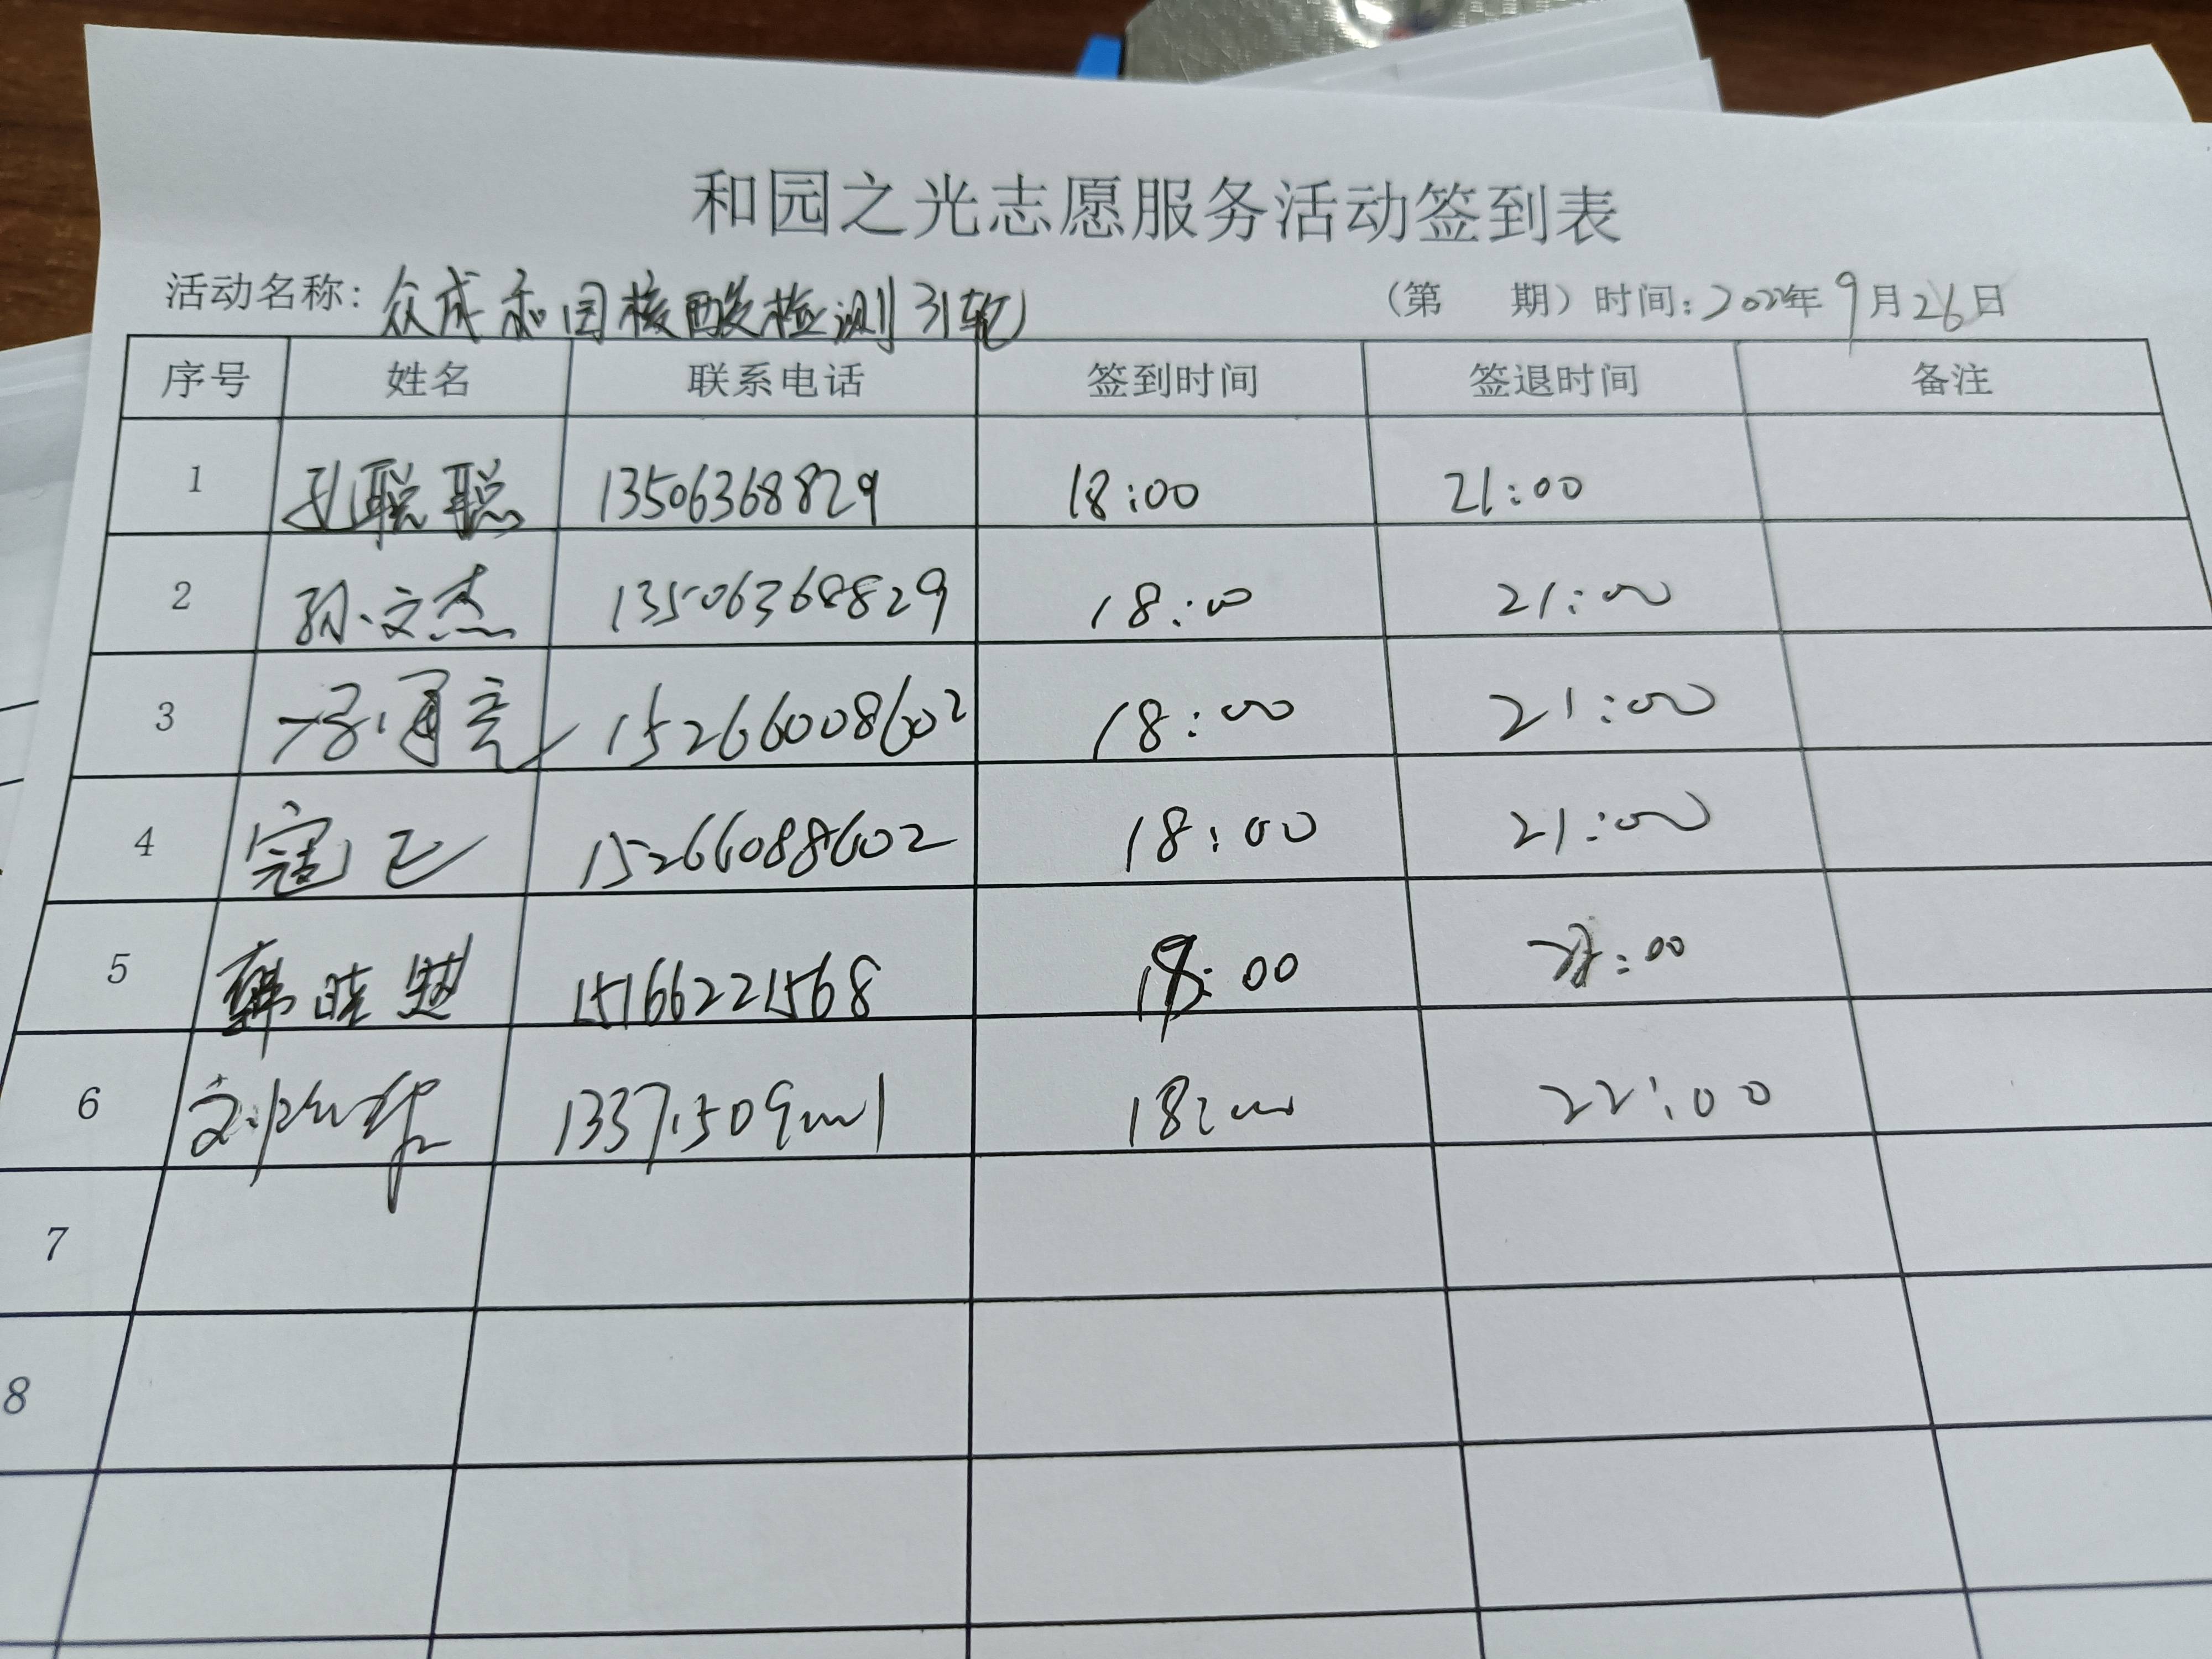 和园之光志愿服务活动签到表
活动名称: 众成和园核酸检测31轮 (第 期) 时间: 2022年9月26日
序号 姓名 联系电话 签到时间 签退时间 备注
1 孔聪聪 13506368829 18:00 21:00
2 孙文杰 13506368829 18:00 21:00
3 15266008602 18:00 21:00
4 寇 15266088602 18:00 21:00
5 韩晓 15166221568 :00 :00
6 18:00 22:00
7
8